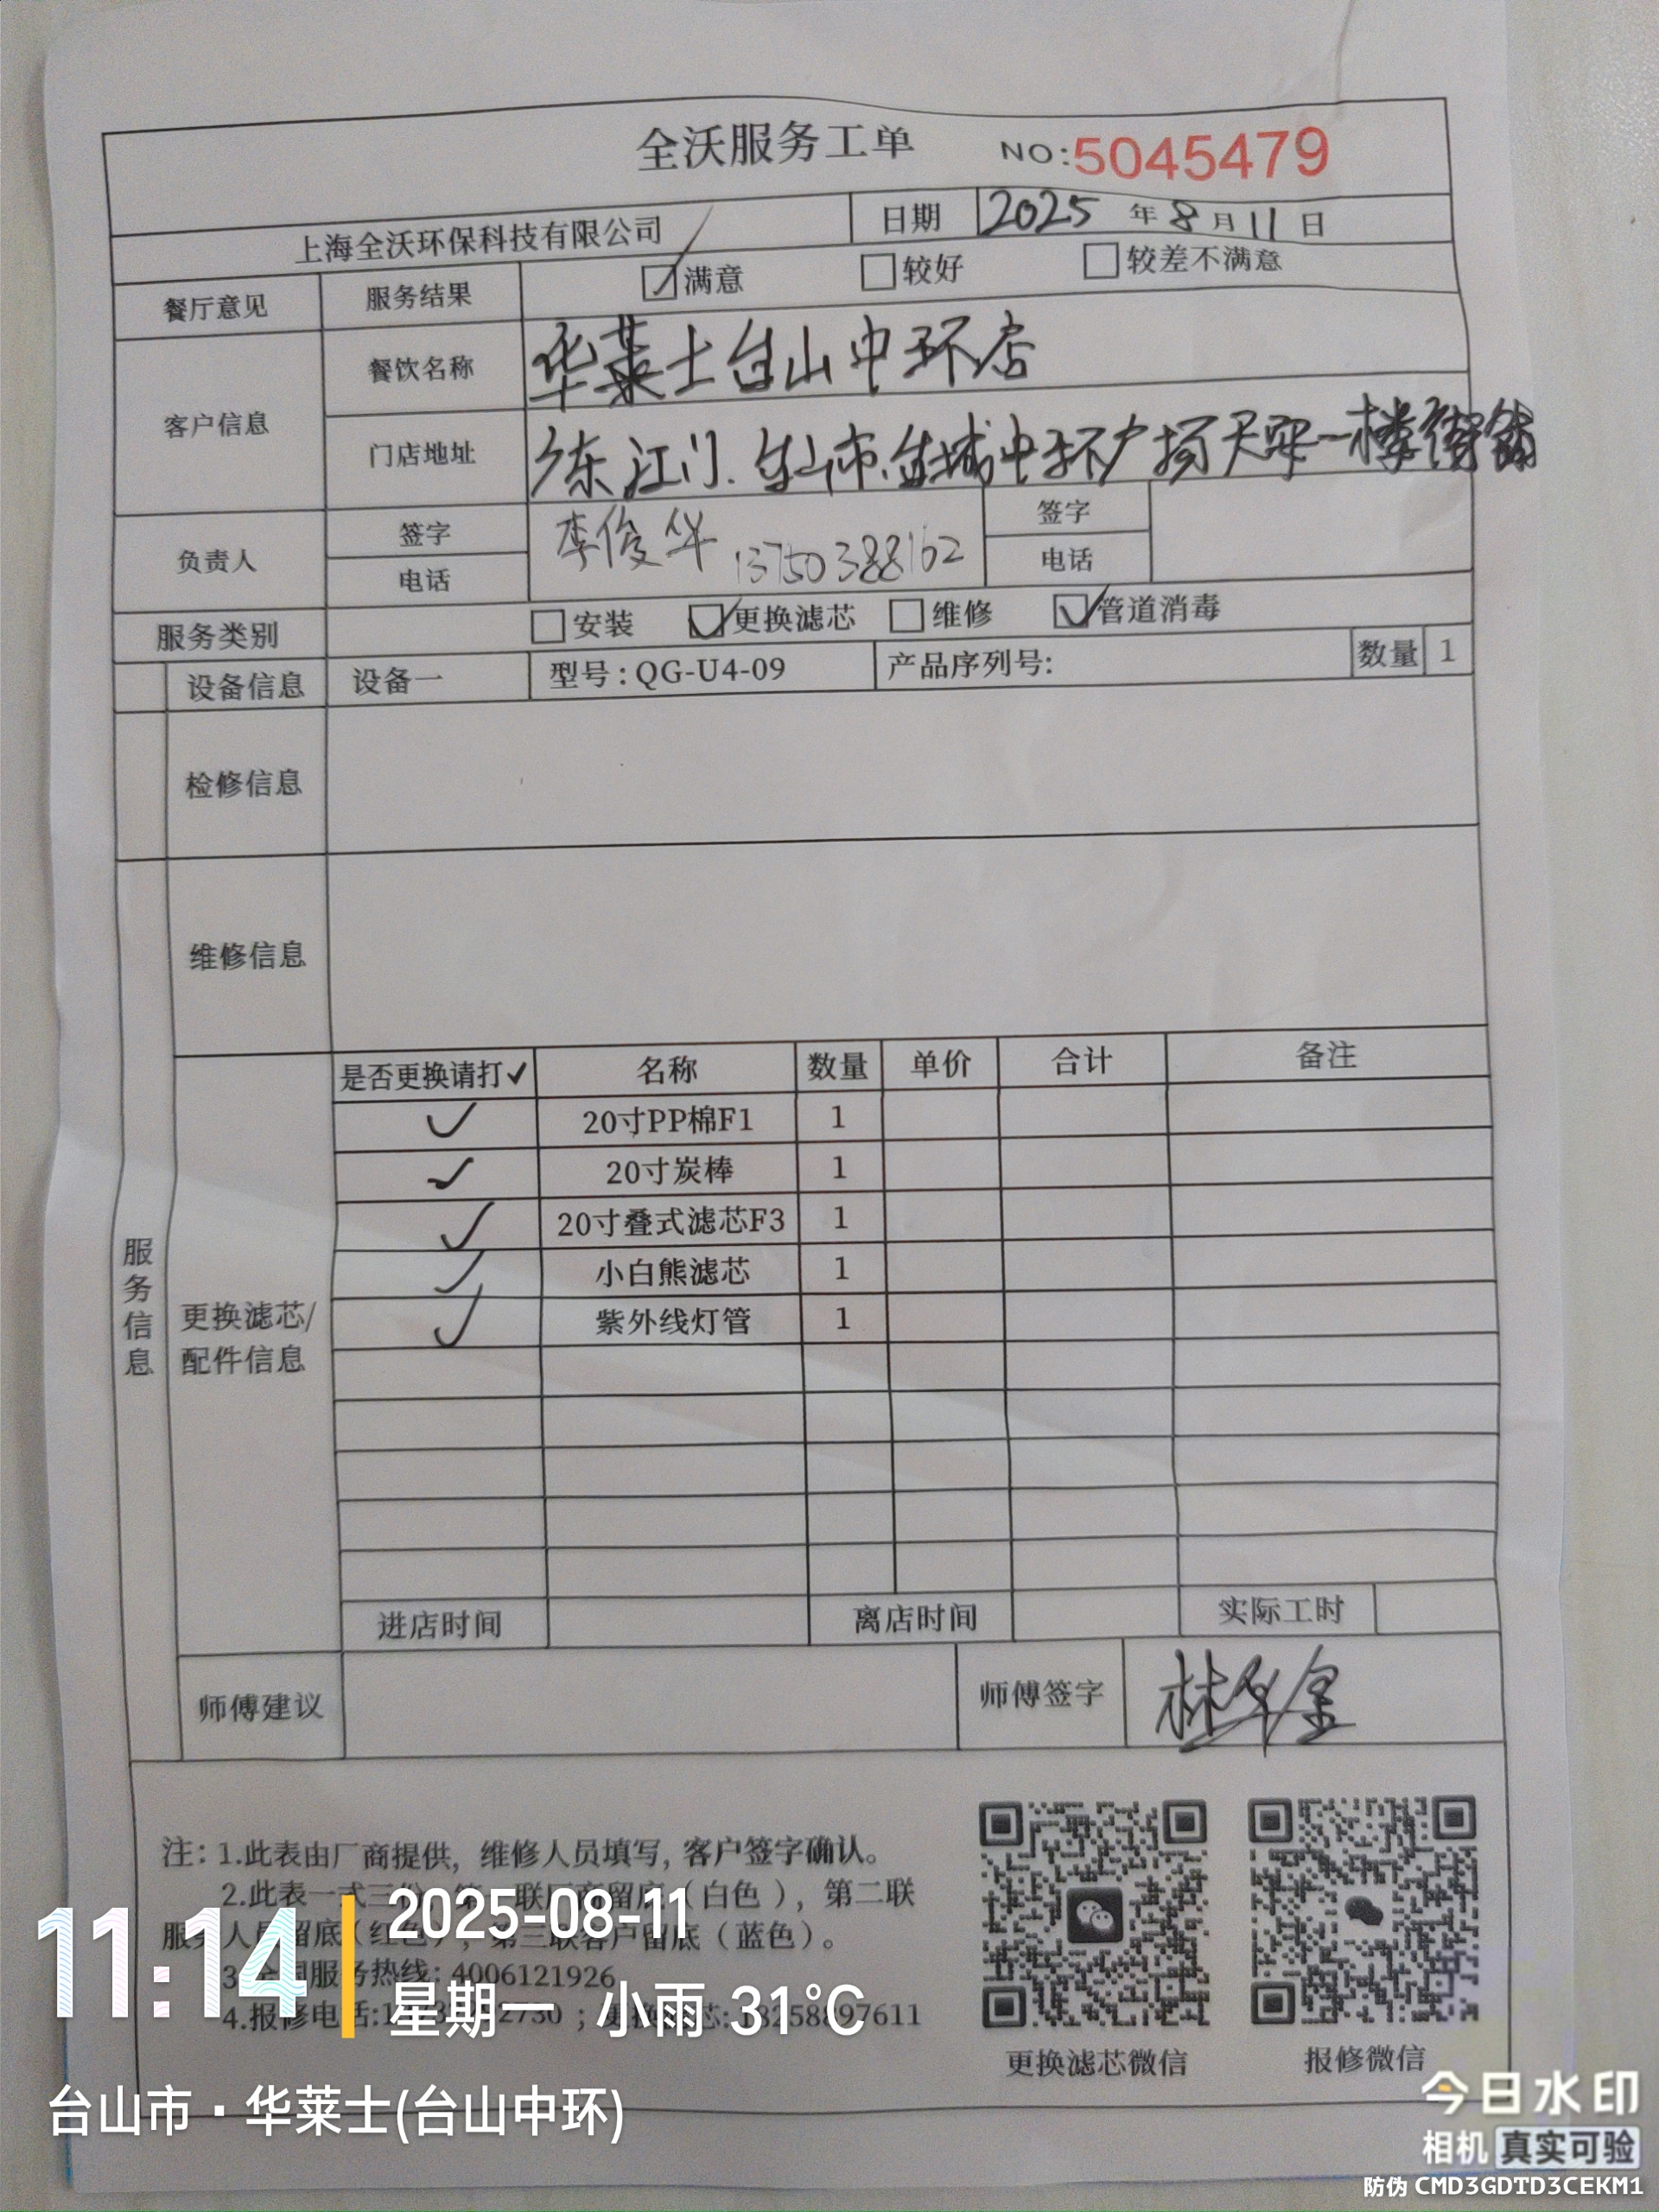 全沃服务工单 NO:5045479
上海全沃环保科技有限公司 日期 2025 年 8 月 11 日
餐厅意见 服务结果 满意 较好 较差不满意
客户信息 餐饮名称 华莱士台山中环店
门店地址 广东江门.台山市.台城中环广场天虹一楼街铺
负责人 签字 李俊华 签字
电话 13750388162 电话
服务类别 安装 更换滤芯 维修 管道消毒
设备信息 设备一 型号:QG-U4-09 产品序列号: 数量 1
检修信息
维修信息
服务信息
更换滤芯/
配件信息
是否更换请打✓ 名称 数量 单价 合计 备注
✓ 20寸PP棉F1 1
✓ 20寸炭棒 1
✓ 20寸叠式滤芯F3 1
✓ 小白熊滤芯 1
✓ 紫外线灯管 1
进店时间 离店时间 实际工时
师傅建议 师傅签字 林华金
注:1.此表由厂商提供,维修人员填写,客户签字确认。
2.此表一式三份,第一联厂商留底(白色),第二联
服务人员留底(红色),第三联客户留底(蓝色)。
3.全国服务热线:4006121926
4.报修电话: ;更换滤芯:18258897611
更换滤芯微信 报修微信
11:14
2025-08-11
星期一 小雨 31℃
台山市·华莱士(台山中环)
今日水印
相机 真实可验
防伪 CMD3GDTD3CEKM1